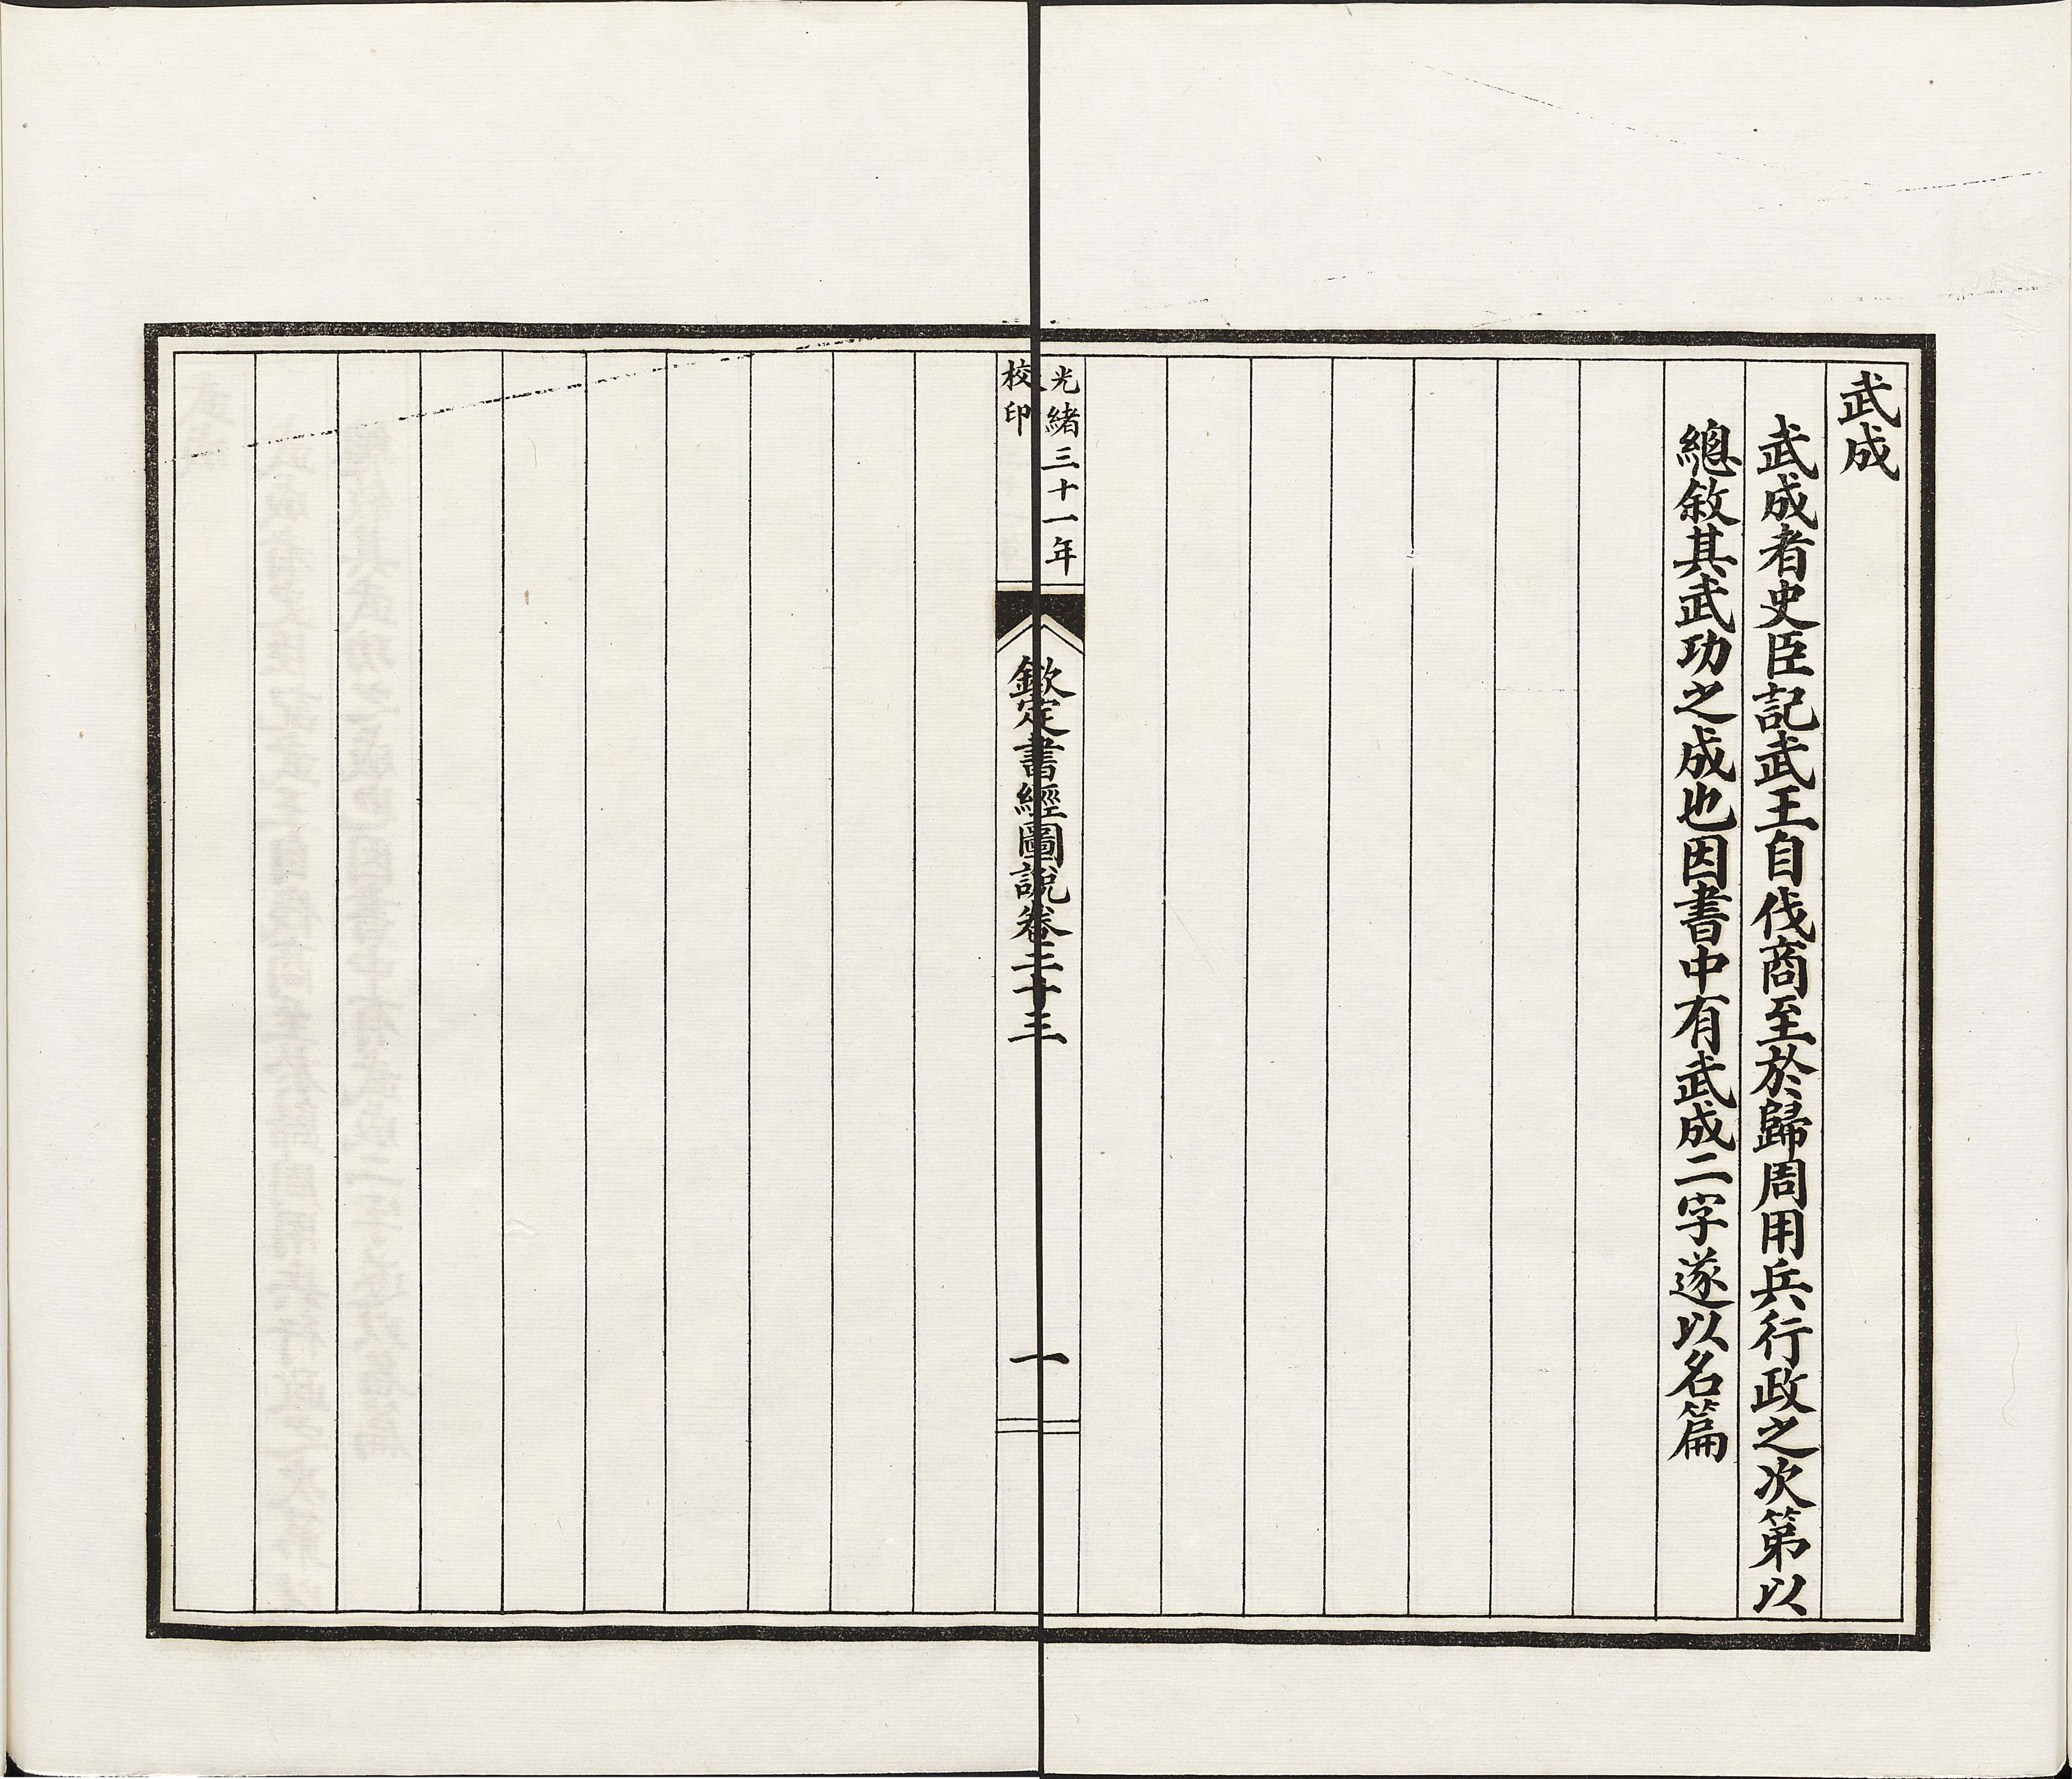 武成
武成者史臣記武王自伐商至於歸周用兵行政之次第以
總敘其武功之成也因書中有武成二字遂以名篇
光緒三十一年
校印
欽定書經圖說卷二十三
一